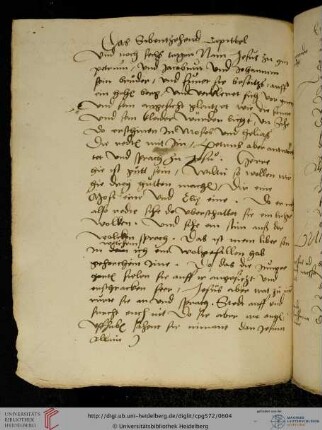 Das Sibentzehend Capittel
Und nach sechs tagen Nam Jesus zu im
petrum, und Jacobum und Johannem
sein bruder, und furet sie beseitz, auff
ein hohē berg, und verkleret sich vor inē
und sein angesicht glantzet wie die sunne
und sein kleider wurden weyß
do erschinen in Moses und Helias
die redtē mit im, Petrus aber antwur
tet und sprach zu Jesu Herre
hie ist gutt sein, wiltu so wollen wir
hie drey hutten machē, dir eine
Mosi eine und Elie eine. Do er
also redte siehe do uberschattet sie ein lichte
wolken. Und siehe ein stim auß der
wolken sprach. Das ist mein lieber sun
in welichem ich ein wolgefallen hab
gehorchent ime. Do das die junger
hortē fielen sie auff ir angesicht und
erschracken seer, Jesus aber trat zu in
rurte sie an und sprach. Steet auff und
furcht euch nit Do sie aber ire augē
auffhubē sahent sie niemant dan Jesum
allein
UNIVERSITÄTS-
BIBLIOTHEK
HEIDELBERG
http://digi.ub.uni-heidelberg.de/diglit/cpg572/0604
© Universitätsbibliothek Heidelberg